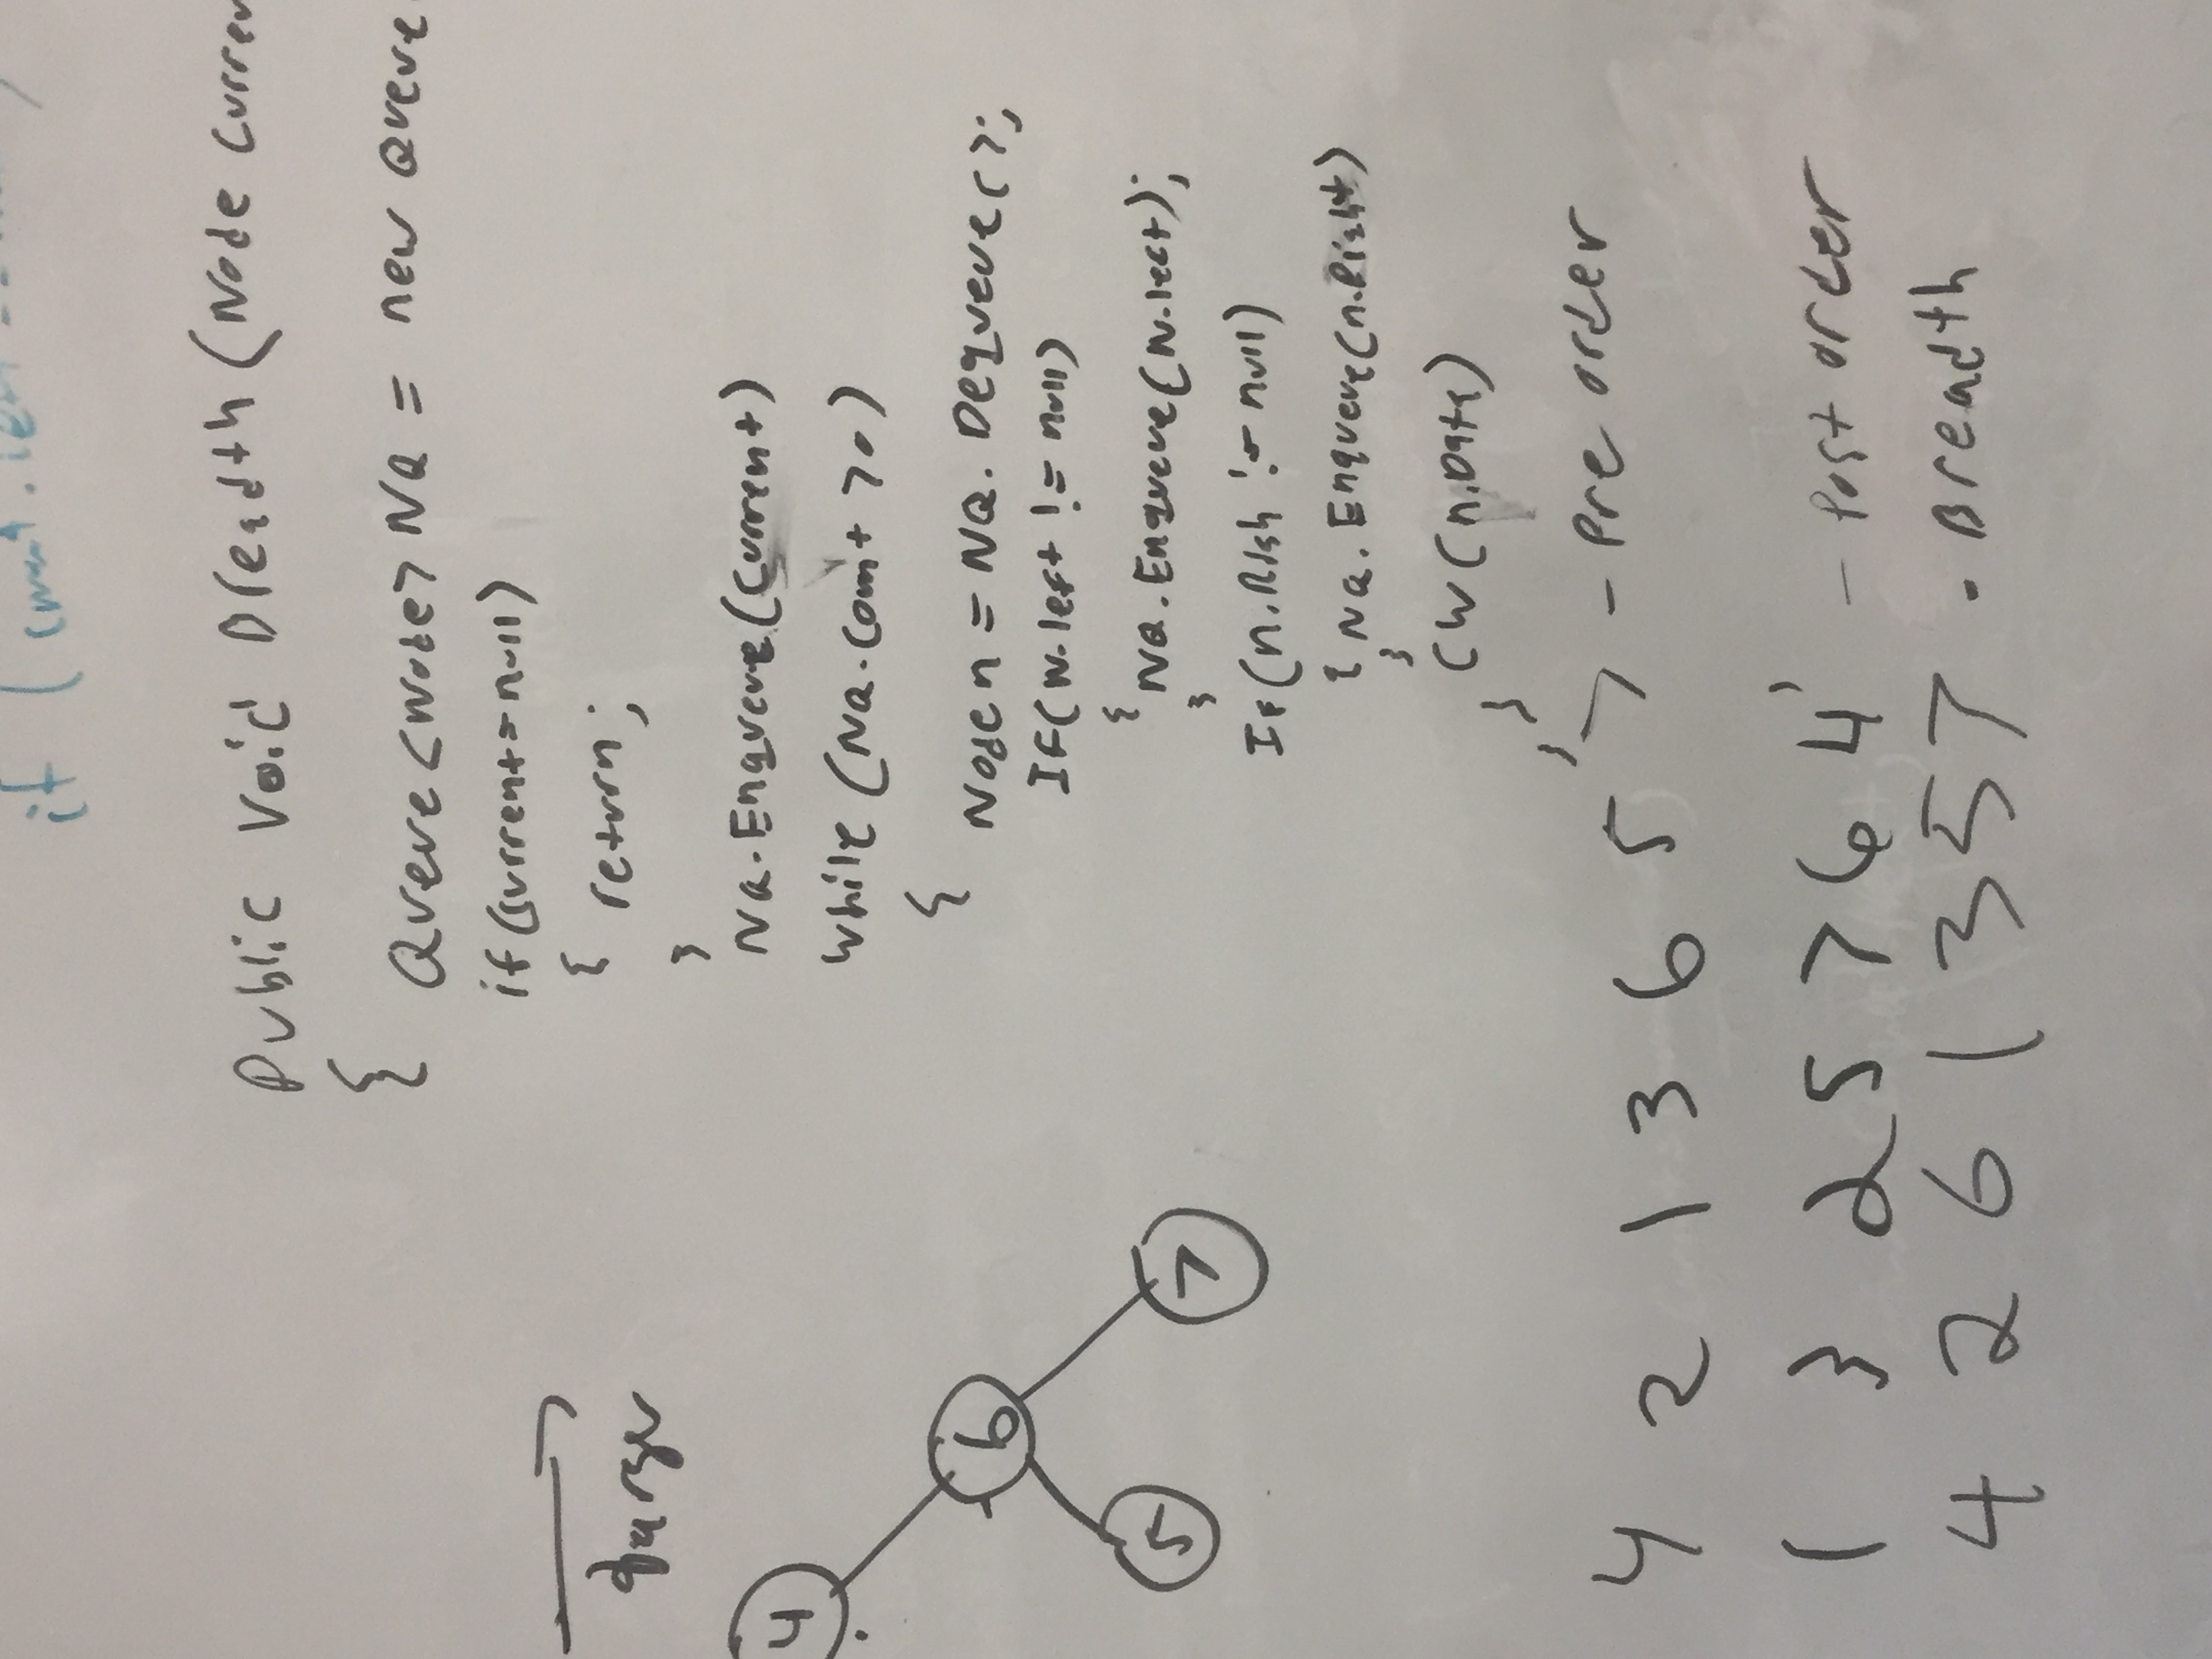 if (
Public Void Breadth (Node Curren
{
Queue<Node> NQ = new Queue
if (current = null)
{ return;
}
NQ.Enqueue(Current)
larger
4
while (NQ.Count >0)
{
Node n = NQ. Dequeue();
6
IF(N.left != null)
{ NQ.Enqueue(N.left);
}
5
7
IF(n.Righ != null)
{ NQ. Enqueue(n.Right)
}
CW(n.Data)
}
}
4 2 1 3 6 5 7 - Pre order
1 3 2 5 7 6 4 - Post order
4 2 6 1 3 5 7 - Breadth